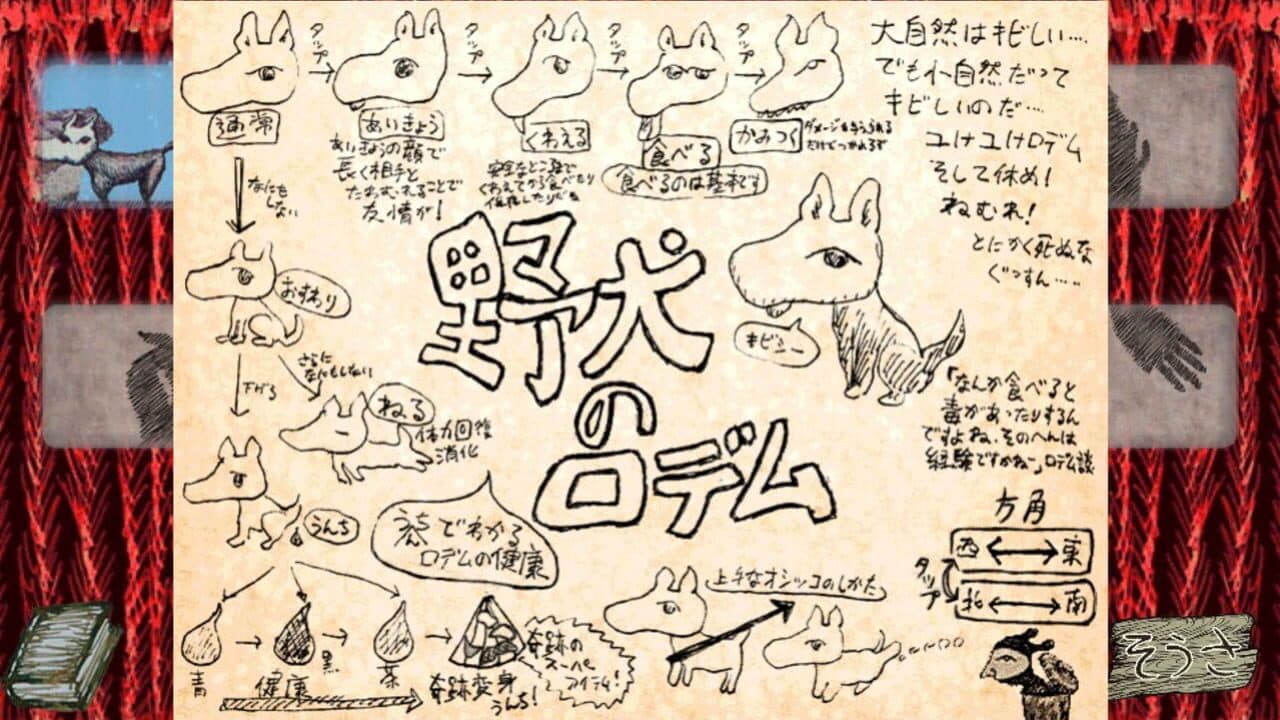 タップ
タップ
タップ
タップ
通常
あいきょう
くわえる
食べる
かみつく
ダメージを与えられる
だけどつかれるぞ
あいきょうの顔で
長く相手と
たわむれることで
友情が!
安全なところまで
くわえてから食べたり
食べるのは基本です
大自然はキビしい…
でも小自然だって
キビしいのだ…
ユけユけロデム
そして休め!
ねむれ!
とにかく死ぬな
ぐっすん…..
なにも
しない
おすわり
さらに
なにもしない
下げる
ねる
体力回復
消化
うんち
野犬
の
ロデム
キビシー
「なんか食べると
毒があったりするん
ですよね、そのへんは
経験ですかねー」ロデム談
うんちでわかる
ロデムの健康
方角
西 東
タップ
北 南
上手なオシッコのしかた
青
健康
黒
茶
奇跡変身
うんち!
奇跡の
スーパー
アイテム!
そうさ